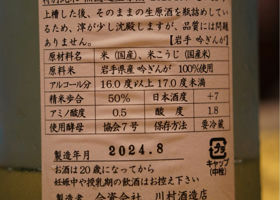 上槽した後、そのままの生原酒を瓶詰めしてい
るため、滓が少し沈殿しますが、品質には問題
ありません。 【岩手 吟ぎんが】
原材料名 米(国産)、米こうじ(国産米)
原料米 岩手県産 吟ぎんが 100%使用
アルコール分 16.0度以上17.0度未満
精米歩合 50% 日本酒度 +7
アミノ酸度 0.5 酸度 1.8
使用酵母 協会7号 保存方法 要冷蔵
製造年月 2024.8
キャップ
(中栓)
お酒は20歳になってから
妊娠中や授乳期の飲酒はお控え下さい
製造者 合資会社 川村酒造店